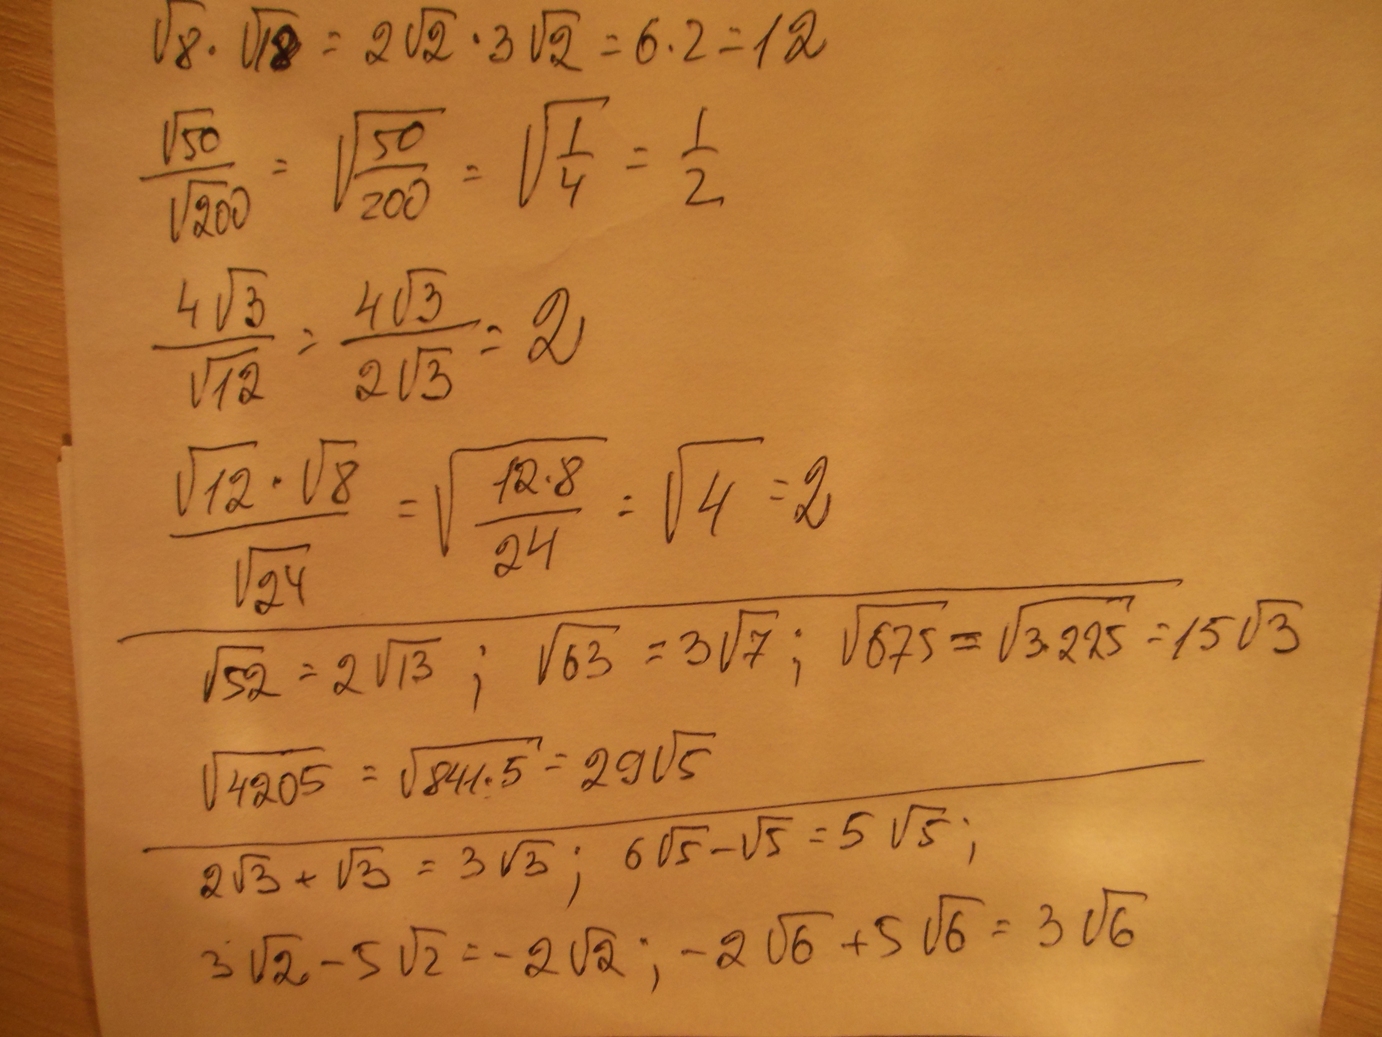 √8 · √18 = 2√2 · 3√2 = 6 · 2 = 12
√50/√200 = √(50/200) = √(1/4) = 1/2
4√3/√12 = 4√3/2√3 = 2
√12 · √8/√24 = √(12·8/24) = √4 = 2
√52 = 2√13 ; √63 = 3√7 ; √675 = √3·225 = 15√3
√4205 = √841·5 = 29√5
2√3 + √3 = 3√3 ; 6√5 - √5 = 5√5 ;
3√2 - 5√2 = -2√2 ; -2√6 + 5√6 = 3√6